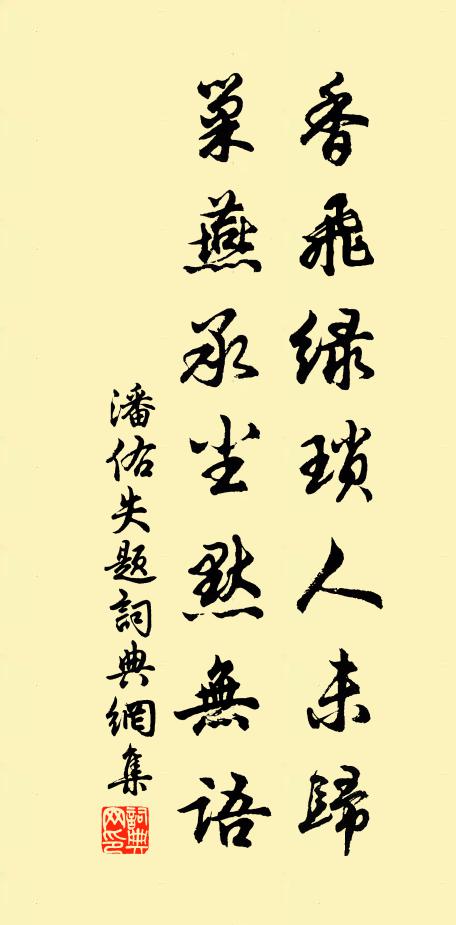 香飛綠瑣人未歸
巢燕承尘默無語
潘佑失题詞典網集
詞典网印